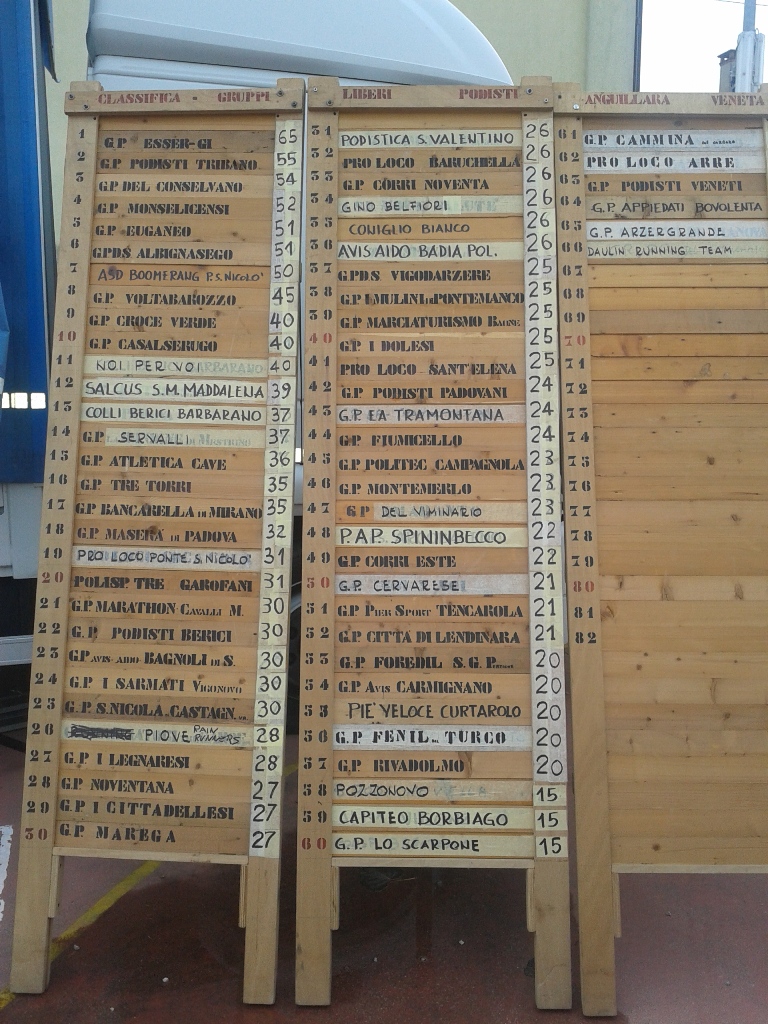 CLASSIFICA - GRUPPI
1 G.P. ESSER-GI 65
2 G.P. PODISTI TRIBANO 55
3 G.P. DEL CONSELVANO 54
4 G.P. MONSELICENSI 52
5 G.P. EUGANEO 51
6 G.P.D.S. ALBIGNASEGO 51
7 ASD BOOMERANG P.S. NICOLO' 50
8 G.P. VOLTABAROZZO 45
9 G.P. CROCE VERDE 40
10 G.P. CASALSERUGO 40
11 NOI PER VOI BARBARANO 40
12 SALCUS S.M. MADDALENA 39
13 COLLI BERICI BARBARANO 37
14 G.P. SERVALLI 37
15 G.P. ATLETICA CAVE 36
16 G.P. TRE TORRI 35
17 G.P. BANCARELLA DI MIRANO 35
18 G.P. MASERÀ DI PADOVA 32
19 PRO LOCO PONTE S. NICOLO' 31
20 POLISP. TRE GAROFANI 31
21 G.P. MARATHON CAVALLI M. 30
22 G.P. PODISTI BERICI 30
23 G.P. AVIS-AIDO BAGNOLI DI S. 30
24 G.P. I SARMATI VIGONOVO 30
25 G.P. S. NICOLA CASTAGN. 30
26 PIOVE RAIN RUNNERS 28
27 G.P. I LEGNARESI 28
28 G.P. NOVENTANA 27
29 G.P. I CITTADELLESI 27
30 G.P. MAREGA 27
LIBERI PODISTI
31 PODISTICA S. VALENTINO 26
32 PRO LOCO BARUCHELLA 26
33 G.P. CORRI NOVENTA 26
34 GINO BELFIORI 26
35 CONIGLIO BIANCO 26
36 AVIS AIDO BADIA POL. 26
37 G.P.D.S. VIGODARZERE 25
38 G.P. I MULINI DI PONTEMANCO 25
39 G.P. MARCIATURISMO BAONE 25
40 G.P. I DOLESI 25
41 PRO LOCO SANT'ELENA 25
42 G.P. PODISTI PADOVANI 24
43 G.P. EA TRAMONTANA 24
44 G.P. FIUMICELLO 24
45 G.P. POLITEC CAMPAGNOLA 23
46 G.P. MONTEMERLO 23
47 G.P. DEL VIMINARIO 23
48 P.A.P. SPININBECCO 22
49 G.P. CORRI ESTE 22
50 G.P. CERVARESE 21
51 G.P. PIER SPORT TENCAROLA 21
52 G.P. CITTÀ DI LENDINARA 21
53 G.P. FOREDIL S.G.P. 20
54 G.P. AVIS CARMIGNANO 20
55 PIE' VELOCE CURTAROLO 20
56 G.P. FENIL DEL TURCO 20
57 G.P. RIVADOLMO 20
58 POZZONOVO 15
59 CAPITEO BORBIAGO 15
60 G.P. LO SCARPONE 15
ANGUILLARA VENETA
61 G.P. CAMMINA
62 PRO LOCO ARRE
63 G.P. PODISTI VENETI
64 G.P. APPIEDATI BOVOLENTA
65 G.P. ARZERGRANDE
66 DAULIN RUNNING TEAM
67
68
69
70
71
72
73
74
75
76
77
78
79
80
81
82